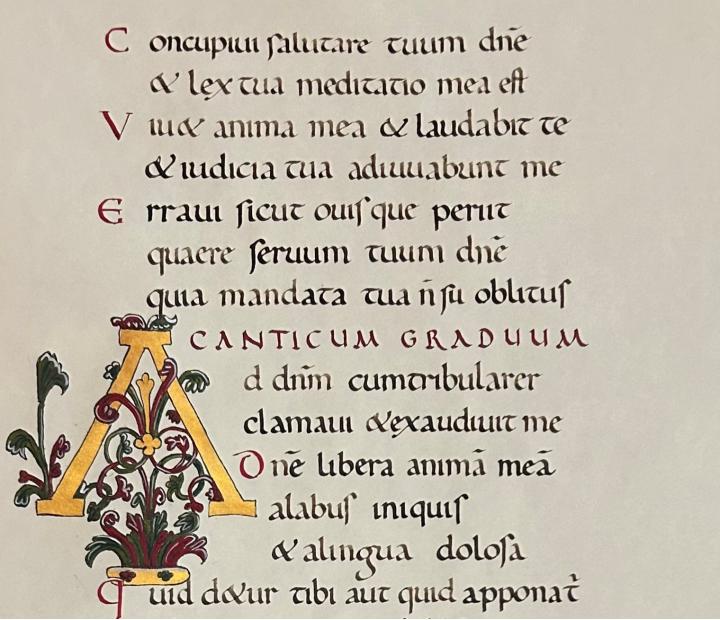 Concupiui salutare tuum dn̄e
& lex tua meditatio mea est
Viu& anima mea & laudabit te
& iudicia tua adiuuabunt me
Erraui sicut ouis que periit
quaere seruum tuum dn̄e
quia mandata tua n̄ su oblitus
CANTICUM GRADUUM
Ad dnm̄ cum tribularer
clamaui & exaudiuit me
Dn̄e libera animā meā
alabus iniquis
& alingua dolosa
Quid d&ur tibi aut quid apponat̄